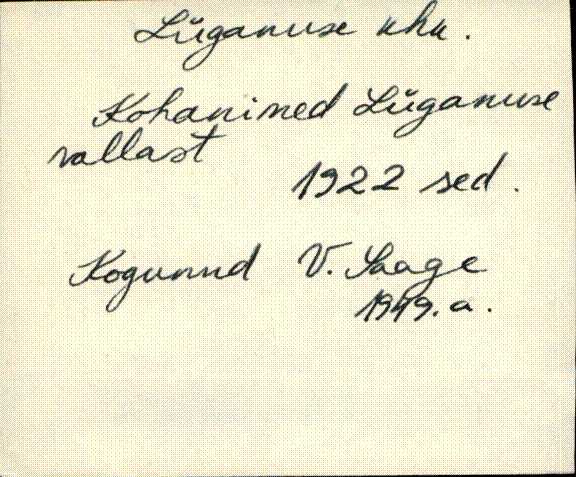 Lüganuse khk.
Kohanimed Lüganuse
vallast
1922 sed.
Kogunud V. Saage
1949. a.